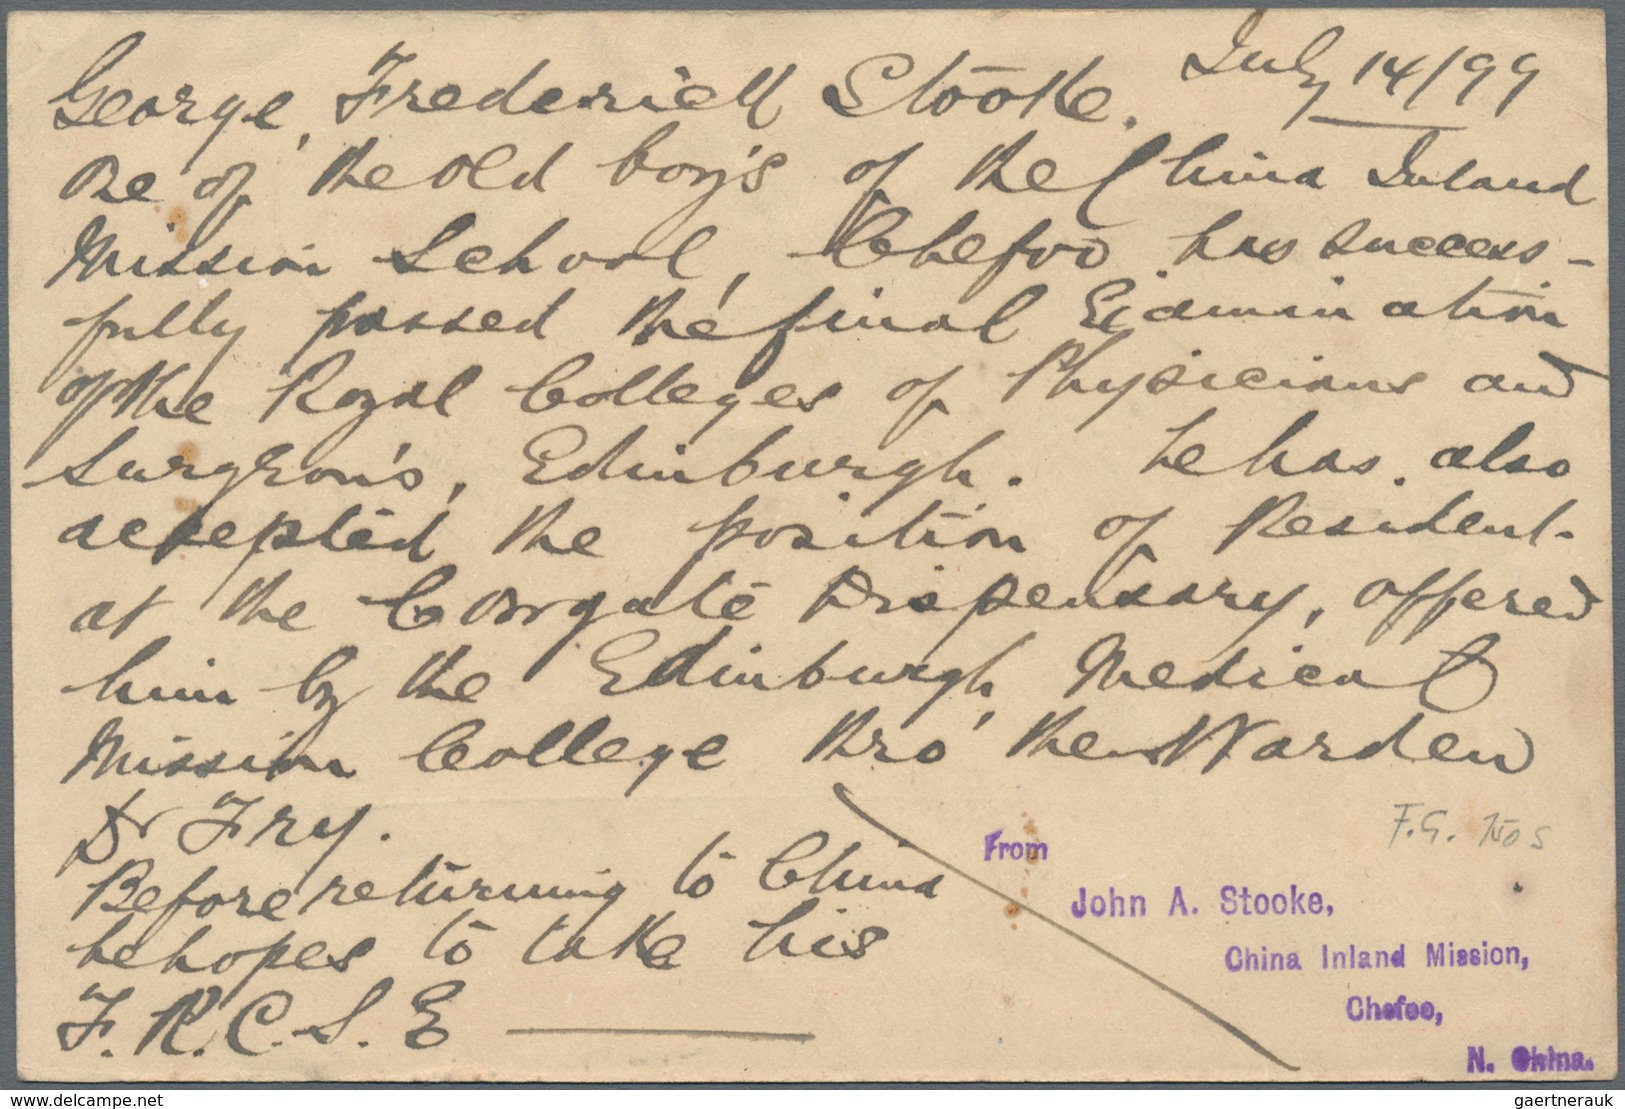 July 14/99
George Frederick Stooke.
One of the old boy's of the China Inland
Mission School, Chefoo has success-
fully passed the final Examination
of the Royal Colleges of Physicians and
Surgeon's, Edinburgh. he has also
accepted the position of Resident.
at the Cowgate Dispensary, offered
him by the Edinburgh Medical
Mission College thro' the Warden
Dr Fry.
Before returning to China
he hopes to take his
F.R.C.S.E
F.G.
From
John A. Stooke,
China Inland Mission,
Chefoo,
N. China.
delcampe.net
gaertnerauk